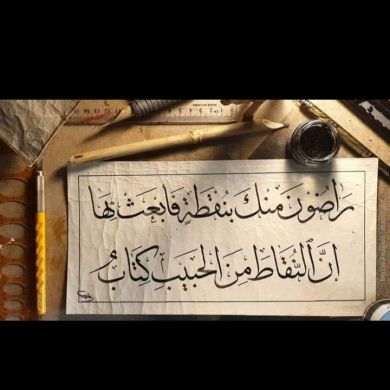 رَاضُونَ مِنكَ بنُقطَةٍ فَابعَث بهَا
إنَّ ٱلنِّقَاطَ مِنَ الحَبيبِ كِتَابُ